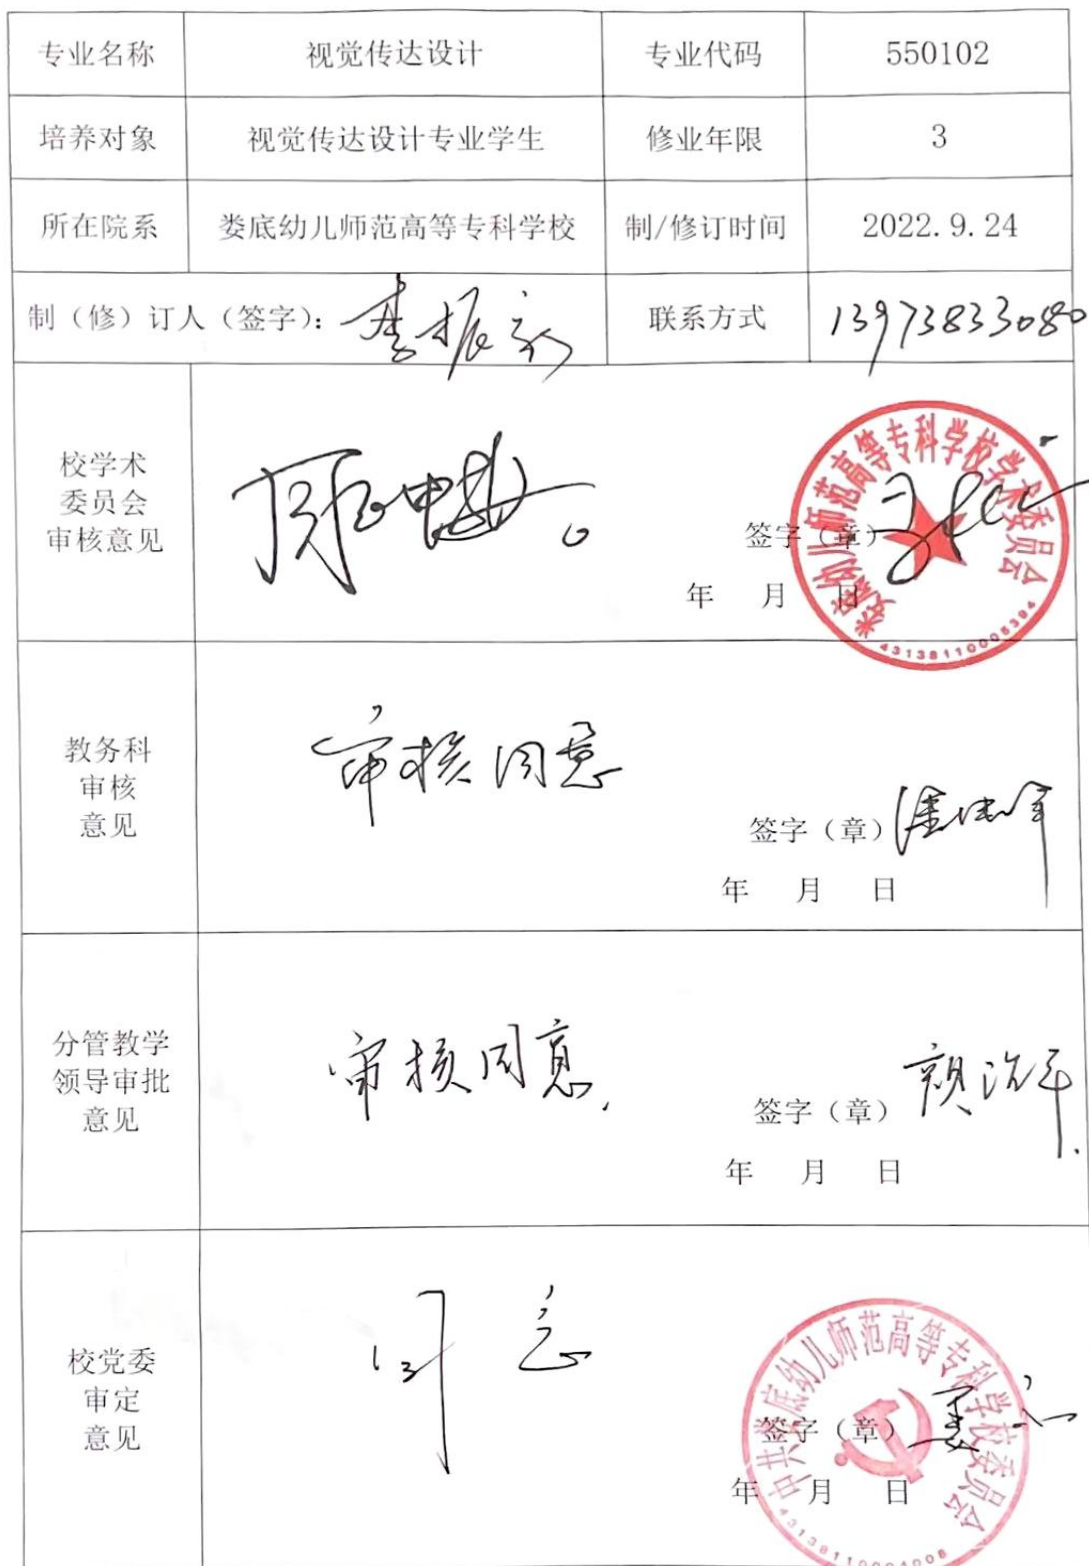 专业名称 视觉传达设计 专业代码 550102
培养对象 视觉传达设计专业学生 修业年限 3
所在院系 娄底幼儿师范高等专科学校 制/修订时间 2022.9.24
制（修）订人（签字）：李振新 联系方式 13973833080
校学术
委员会
审核意见
签字（章）
年 月 日
娄底幼儿师范高等专科学校学术委员会
教务科
审核
意见
审核同意
签字（章）
年 月 日
分管教学
领导审批
意见
审核同意
签字（章）
年 月 日
校党委
审定
意见
同意
签字（章）
年 月 日
中共娄底幼儿师范高等专科学校委员会